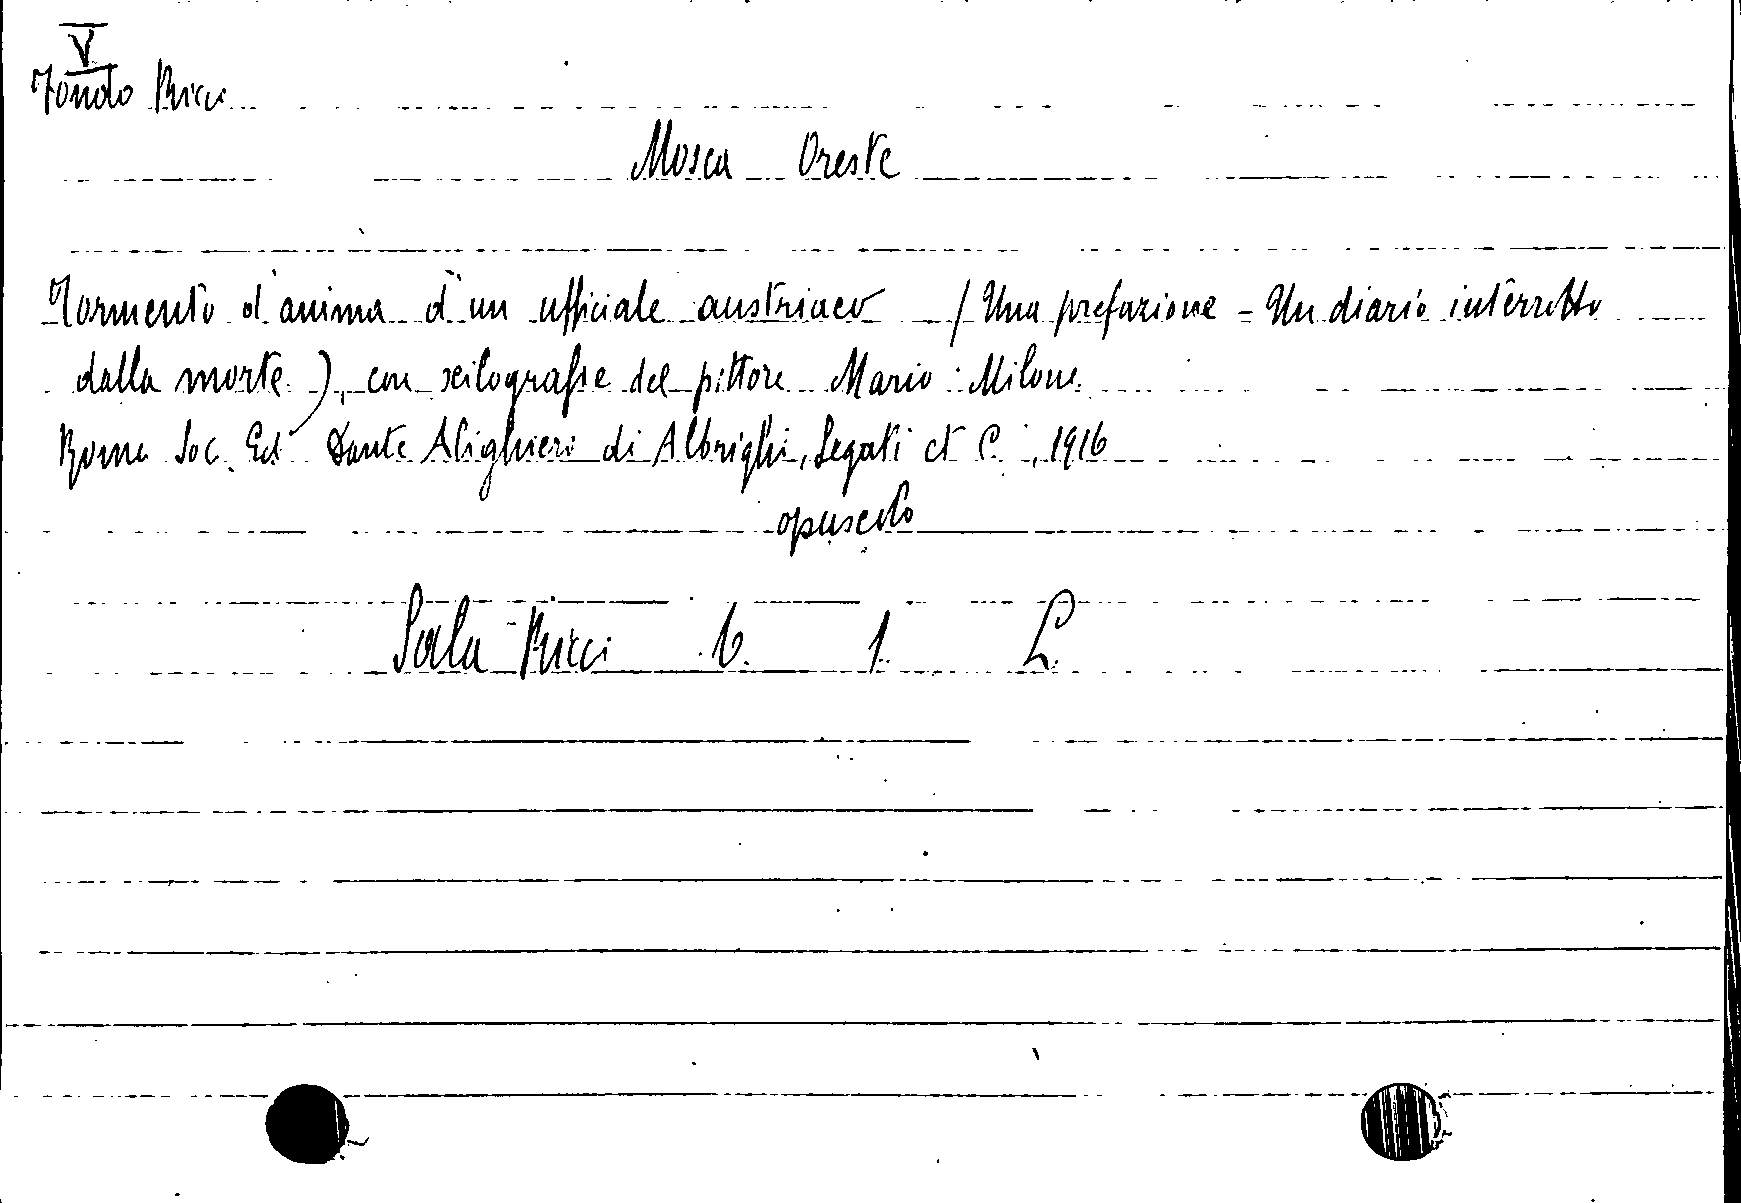 V
Fondo Ricci
Mosca Oreste
Tormento d'anima d'un ufficiale austriaco (Una prefazione - Un diario interrotto
dalla morte), con xilografie del pittore Mario Milone.
Roma Soc. Ed. Dante Alighieri di Albrighi, Segati et C., 1916
opuscolo
Sala Ricci 6. 1. L.